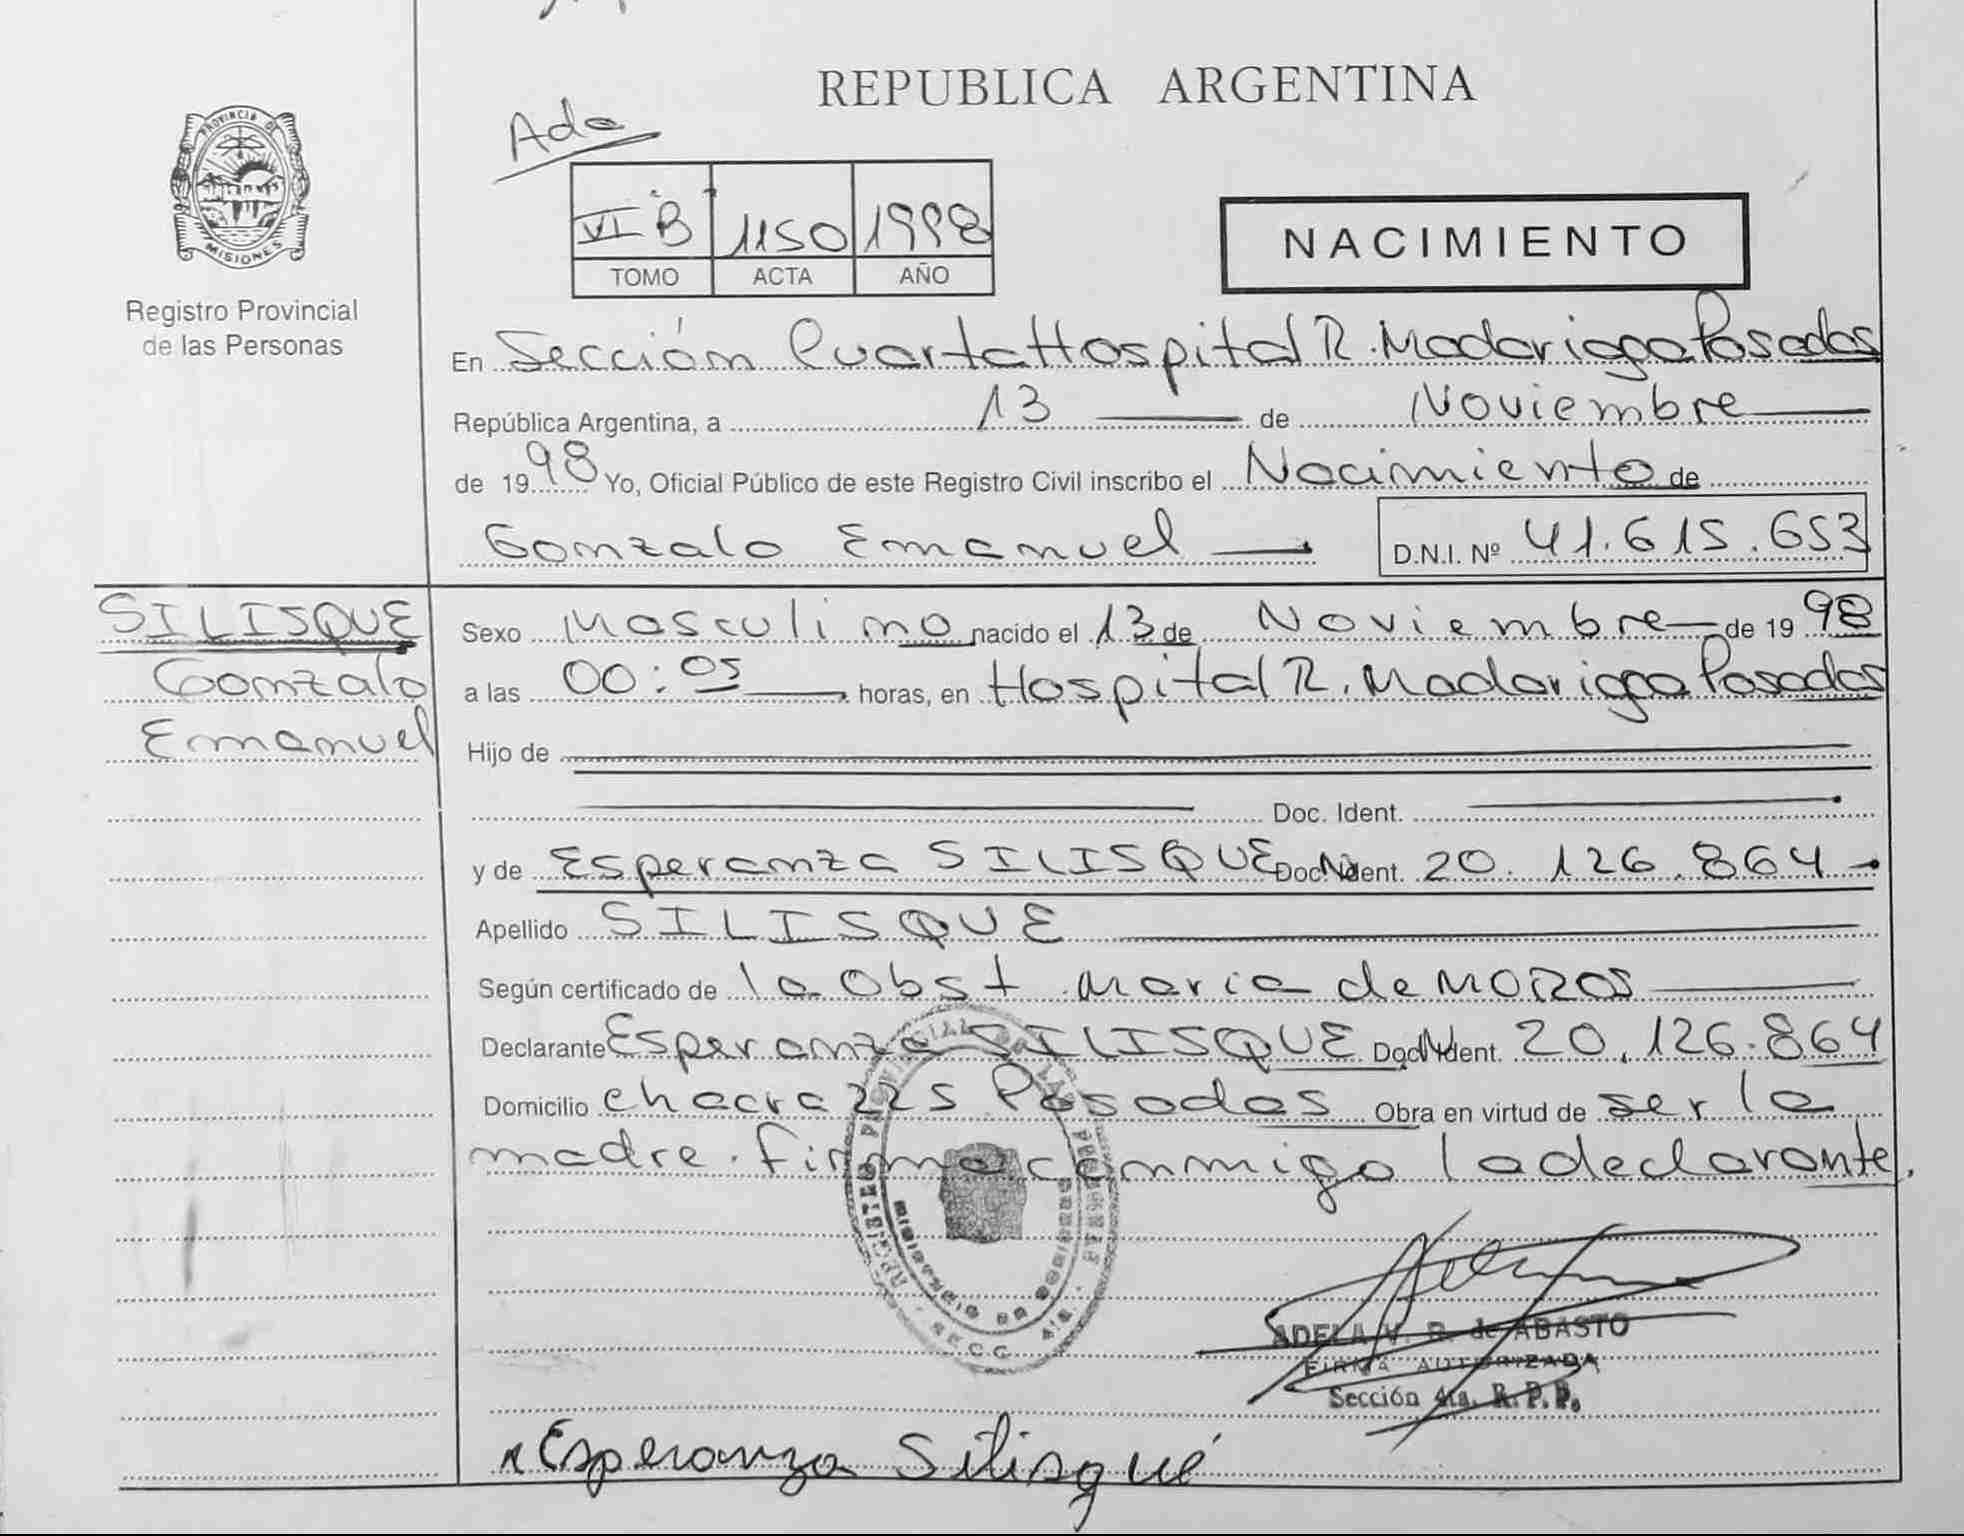 REPUBLICA ARGENTINA
Ada
PROVINCIA DE
MISIONES
Registro Provincial
de las Personas
VI B 1150 1998
TOMO ACTA AÑO
NACIMIENTO
En Sección Cuarta Hospital R. Madariaga Posadas
República Argentina, a 13 de Noviembre
de 1998 Yo, Oficial Público de este Registro Civil inscribo el Nacimiento de
Gonzalo Emanuel D.N.I. Nº 41.615.653
SILISQUE
Gonzalo
Emanuel
Sexo Masculino nacido el 13 de Noviembre de 1998
a las 00:05 horas, en Hospital R. Madariaga Posadas
Hijo de
Doc. Ident.
y de Esperanza SILISQUE Doc. Ident. 20.126.864
Apellido SILISQUE
Según certificado de la Obst. Maria de MOROS
Declarante Esperanza SILISQUE Doc. Ident. 20.126.864
Domicilio chacra 225 Posadas Obra en virtud de ser la
madre. firma conmigo la declarante.
ADELA V. B. de ABASTO
FIRMA AUTORIZADA
Sección 4ta. R. P. P.
Esperanza Silisqué